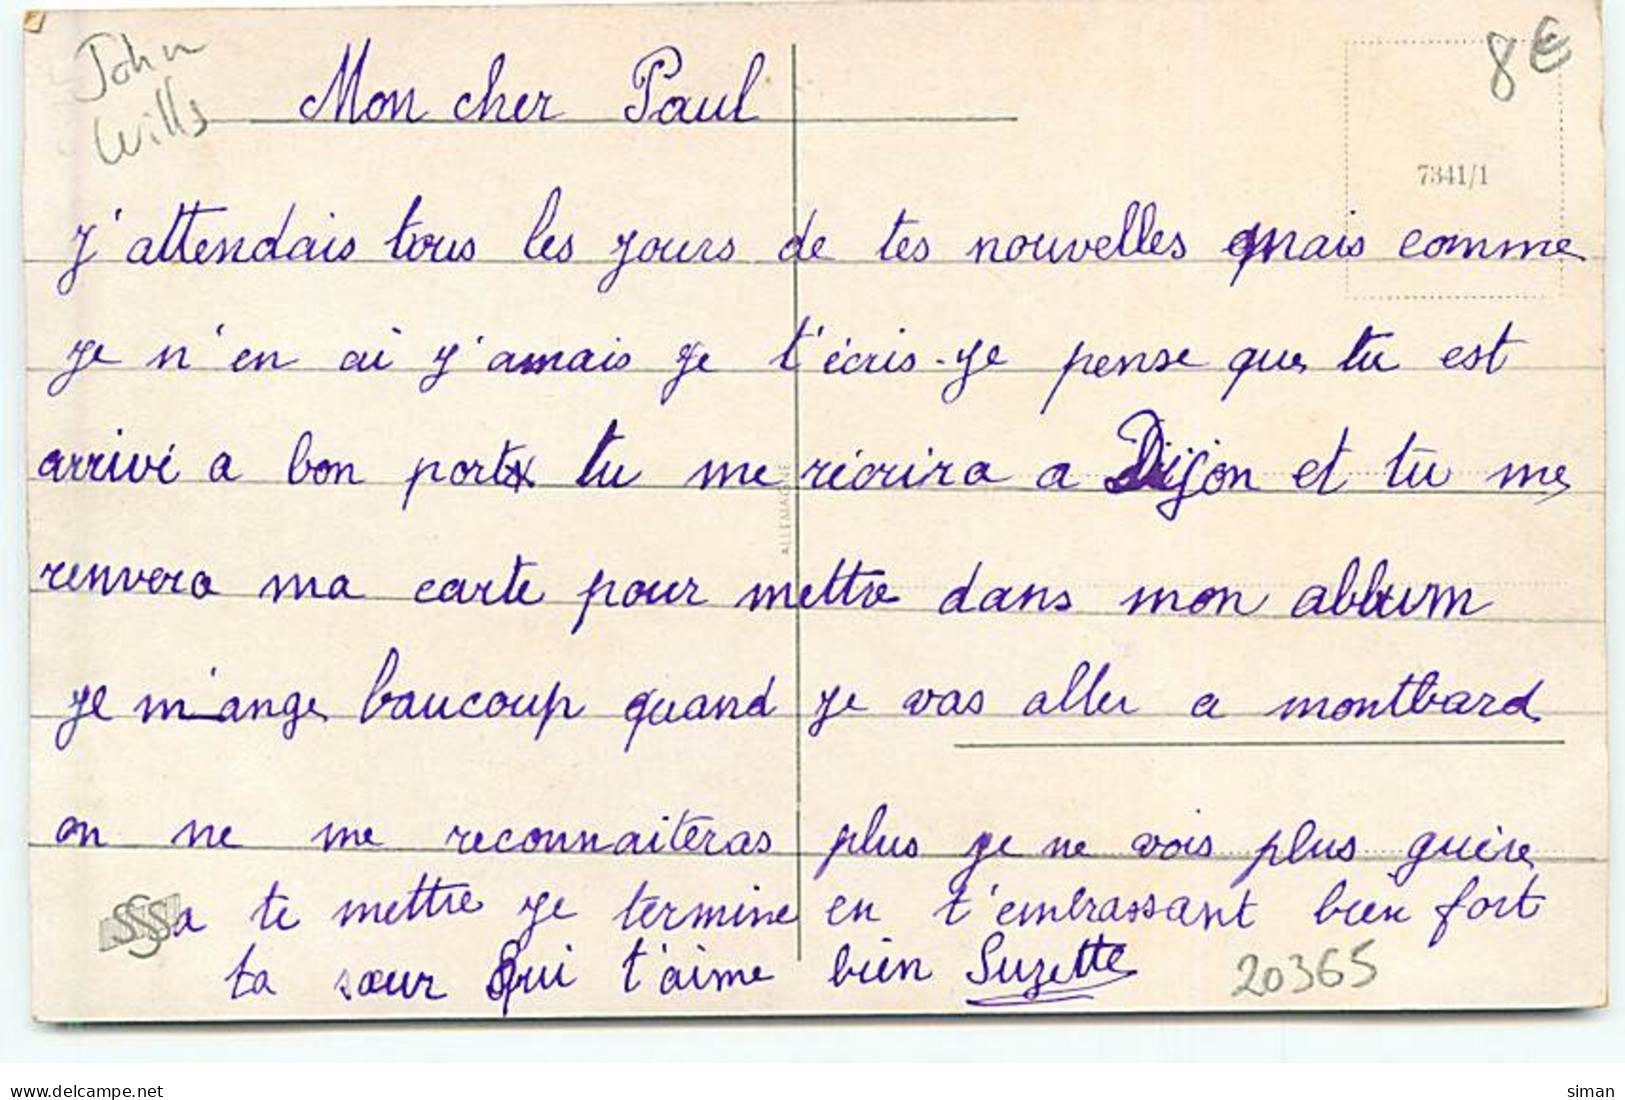 John
Wills
8€
Mon cher Paul
7341/1
j'attendais tous les jours de tes nouvelles mais comme
je n'en ai j'amais je t'écris - je pense que tu est
arrivé a bon port tu me récrira a Dijon et tu me
ALLEMAGNE
renvera ma carte pour mettre dans mon album
je m'ange baucoup quand je vas aller a montbard
on ne me reconnaiteras plus je ne vois plus guère
a te mettre je termine en t'embrassant bien fort
ta sœur qui t'aime bien Suzette
20365
delcampe.net
siman